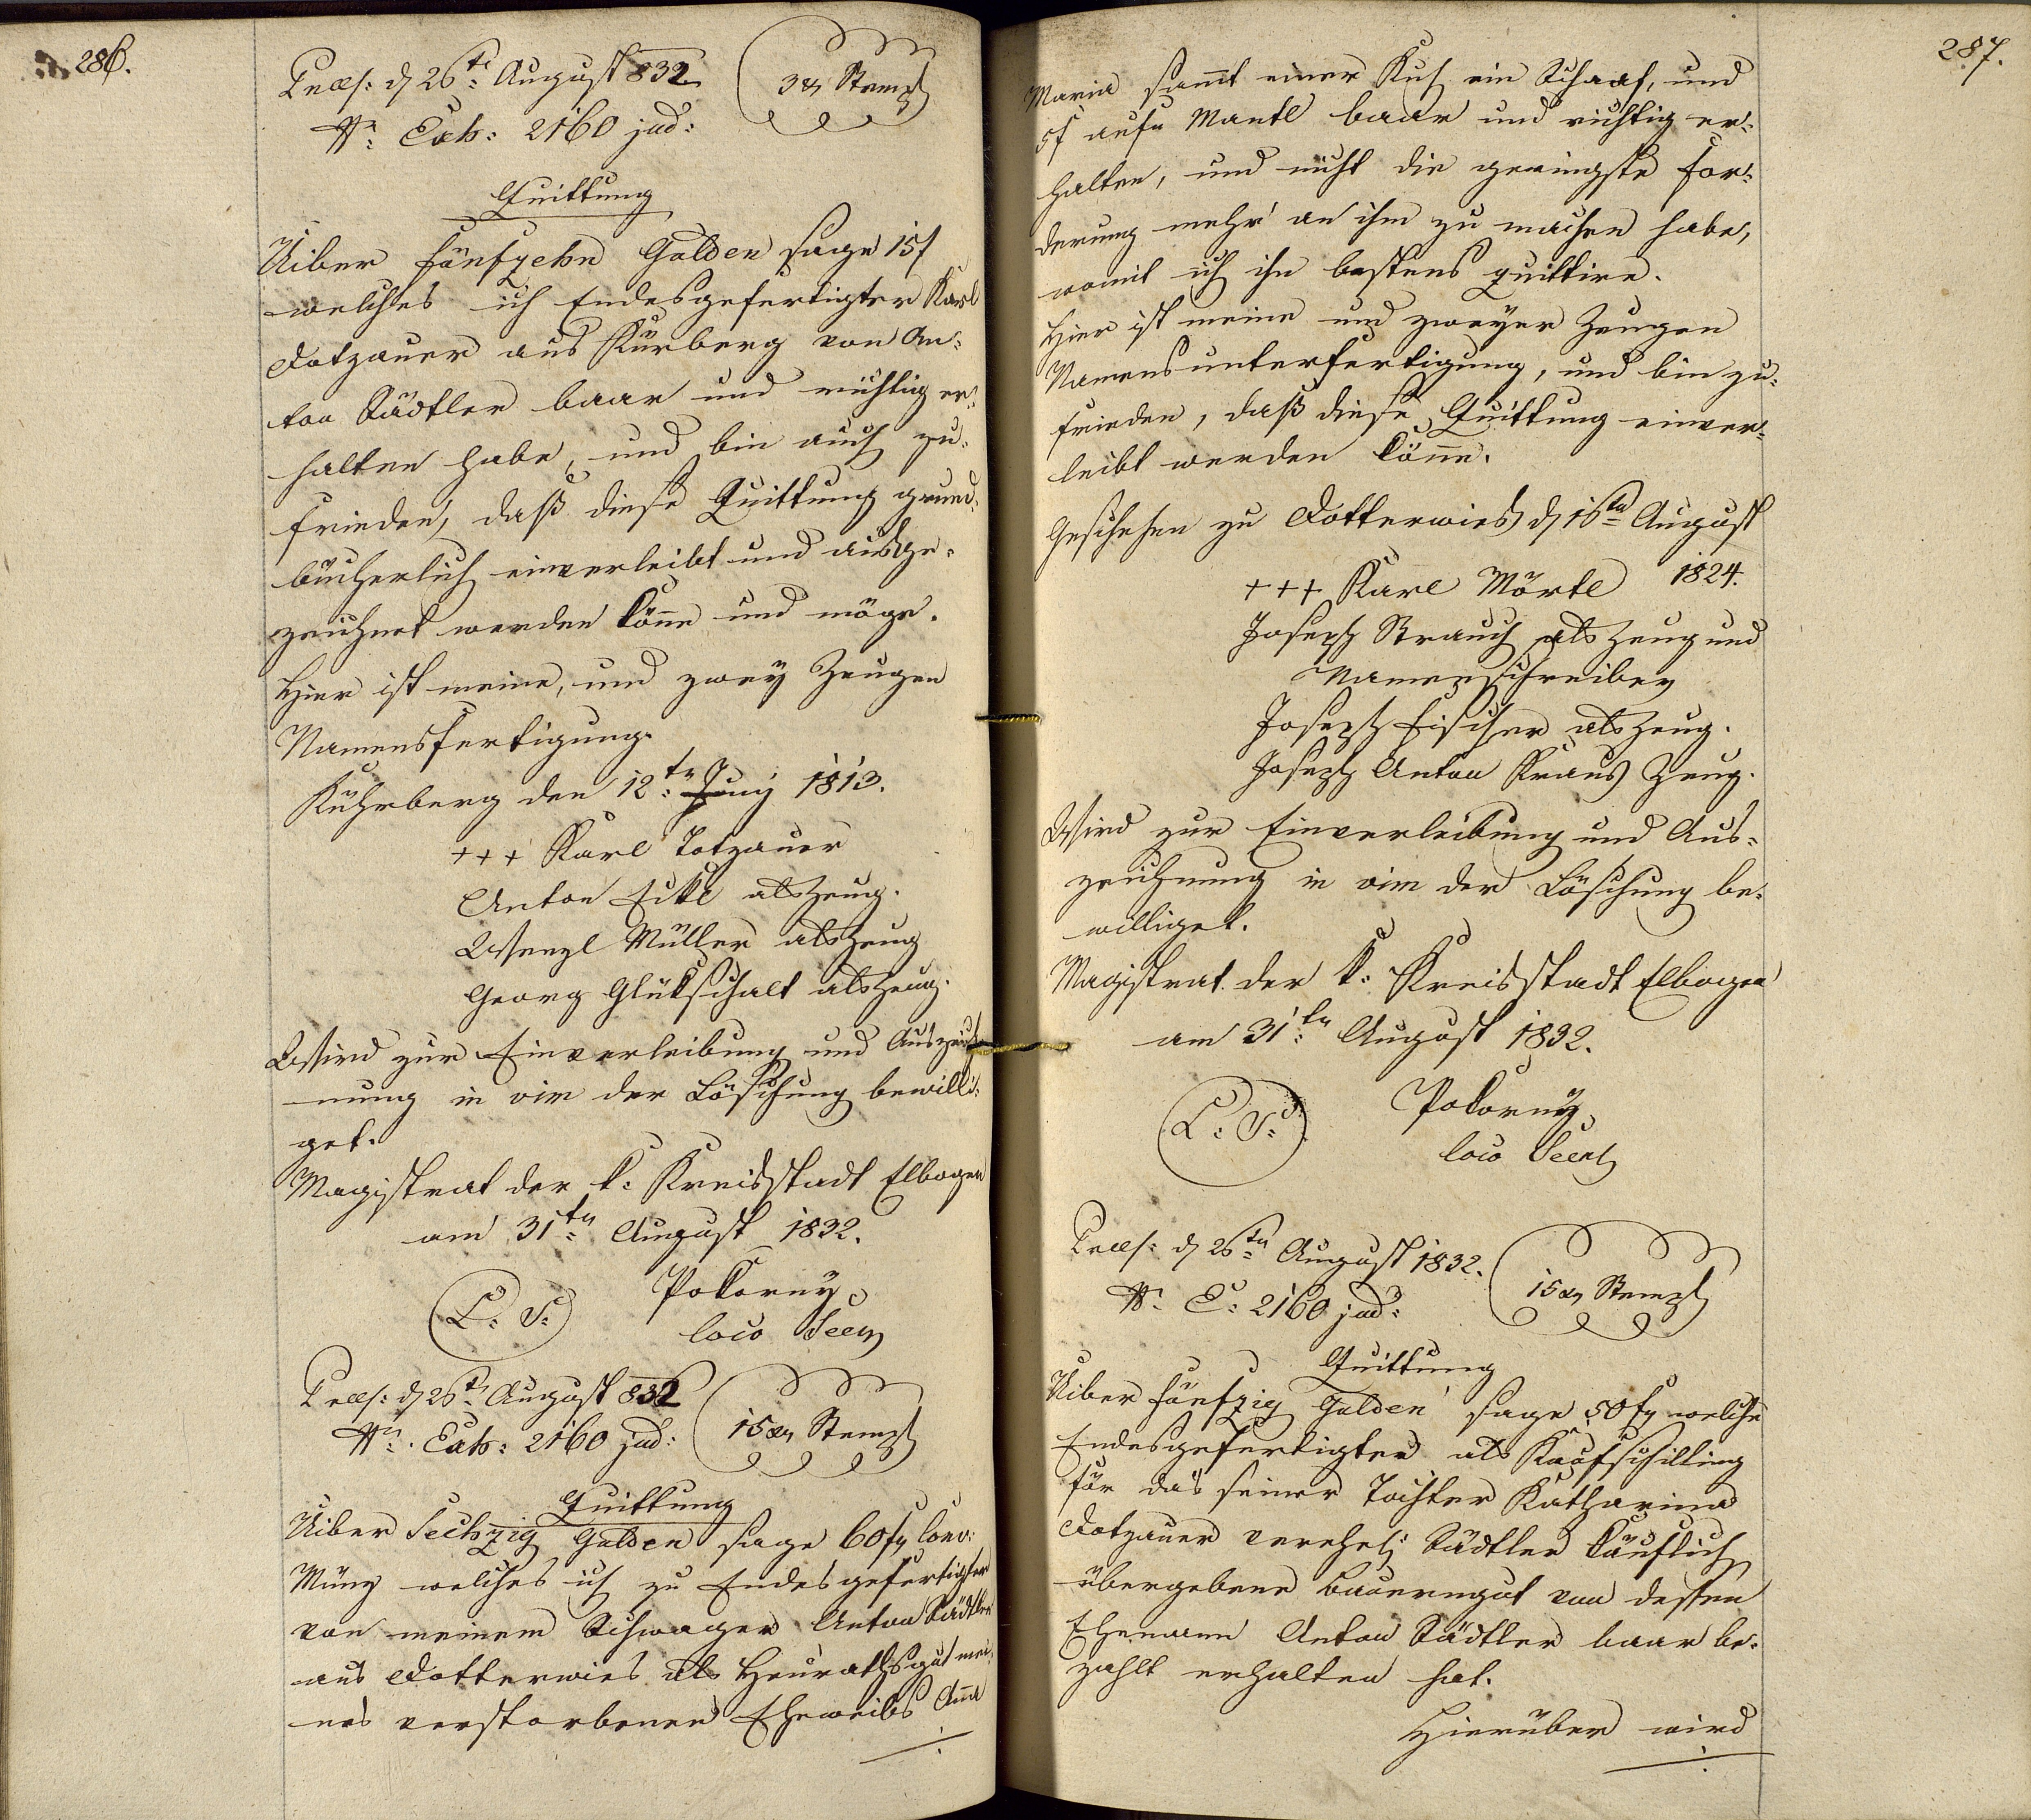 286.
Præs: d 26te August 832
3 xr Stempl
Nr: Exh: 2160 jud:
Quittung
Uiber Fünfzehn Gulden sage 15 f
welches ich Endesgefertigter Karl
Dotzauer aus Kürberg von An-
ton Städtler baar und richtig er-
halten habe, und bin auch zu-
frieden, daß diese Quittung grund-
bücherlich einverleibt und ausge-
zeichnet werden könne und möge.
Hier ist meine, und zwey Zeugen
Namensfertigung.
Kührberg den 12tn Juny 1813.
+++ Karl Totzauer
Anton Eckl als Zeug.
Wenzl Müller als Zeug
Georg Glückschalt als Zeug.
Wird zur Einverleibung und Auszeich-
nung in vim der Löschung bewilli-
get.
Magistrat der k: Kreisstadt Elbogen
am 31tn August 1832.
L: S:
Pokorny
loco Secr
Præs: d 26tn August 832
15 xr Stempl
Nr: Exh: 2160 jud:
Quittung
Uiber Sechzig Gulden sage 60 fr Conv:
Münz welches ich zu Endesgefertigter
von meinem Schwager Anton Städtler
aus Dotterwies als Heurathsgut mei-
nes verstorbenen Eheweibs Aña
287.
Maria sam̃t einer Kuh, ein Schaaf, und
5 f aufn Mantl baar und richtig er-
halten, und nicht die geringste For-
derung mehr an ihm zu machen habe,
womit ich ihn bestens quittire.
Hier ist meine und zweyer Zeugen
Namensunterfertigung, und bin zu-
frieden, daß diese Quittung einver-
leibt werden kön̄e.
Geschehen zu Dotterwies d 16tn August
1824.
+++ Karl Mörtl
Joseph Strauch als Zeug und
Namenschreiber
Joseph Fischer als Zeug.
Joseph Anton Kraus Zeug.
Wird zur Einverleibung und Aus-
zeichnung in vim der Löschung be-
williget.
Magistrat der k: Kreisstadt Elbogen
am 31tn August 1832.
L: S:
Pokorny
loco Secret
Præs: d 26tn August 1832.
15 xr Stempl
Nr: E: 2160 jud:
Quittung
Uiber Fünfzig Gulden sage 50 fr welche
Endesgefertigter als Kaufschilling
für das seiner Tochter Katharina
Dotzauer verehel: Städtler käuflich
übergebene Bauerngut von dessen
Ehemann Anton Städtler baar be-
zahlt erhalten hat.
Hierüber wird